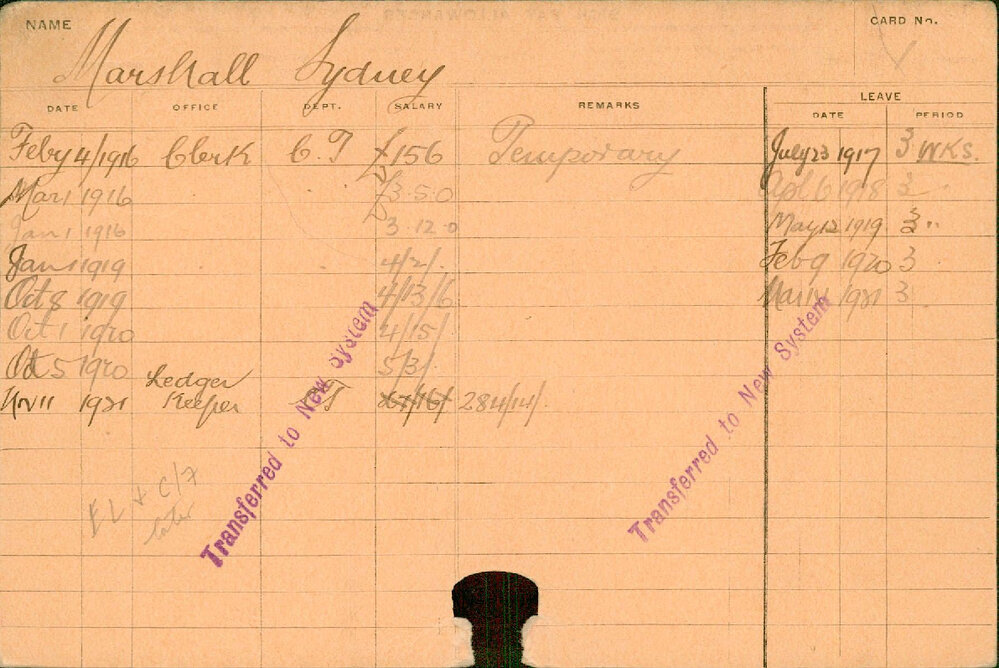 NAME
CARD No.
Marshall Sydney
DATE OFFICE DEPT. SALARY REMARKS LEAVE
DATE PERIOD
Feby 4/1916 Clerk C.T £156 Temporary July 23 1917 3 WKS.
Mar 1 1916 £3.5.0 Apl 6 1918 3 "
Jan 1 1916 3.12.0 May 12 1919 3 "
Jan 1 1919 4/2/. Feb 9 1920 3
Oct 8 1919 4/13/6 Mar 14 1921 3
Oct 1 1920 4/15/
Oct 5 1920 5/3/.
Ledger
Nov 11 1921 Keeper CT 284/14/.
EL + C/7
later
Transferred to New System
Transferred to New System